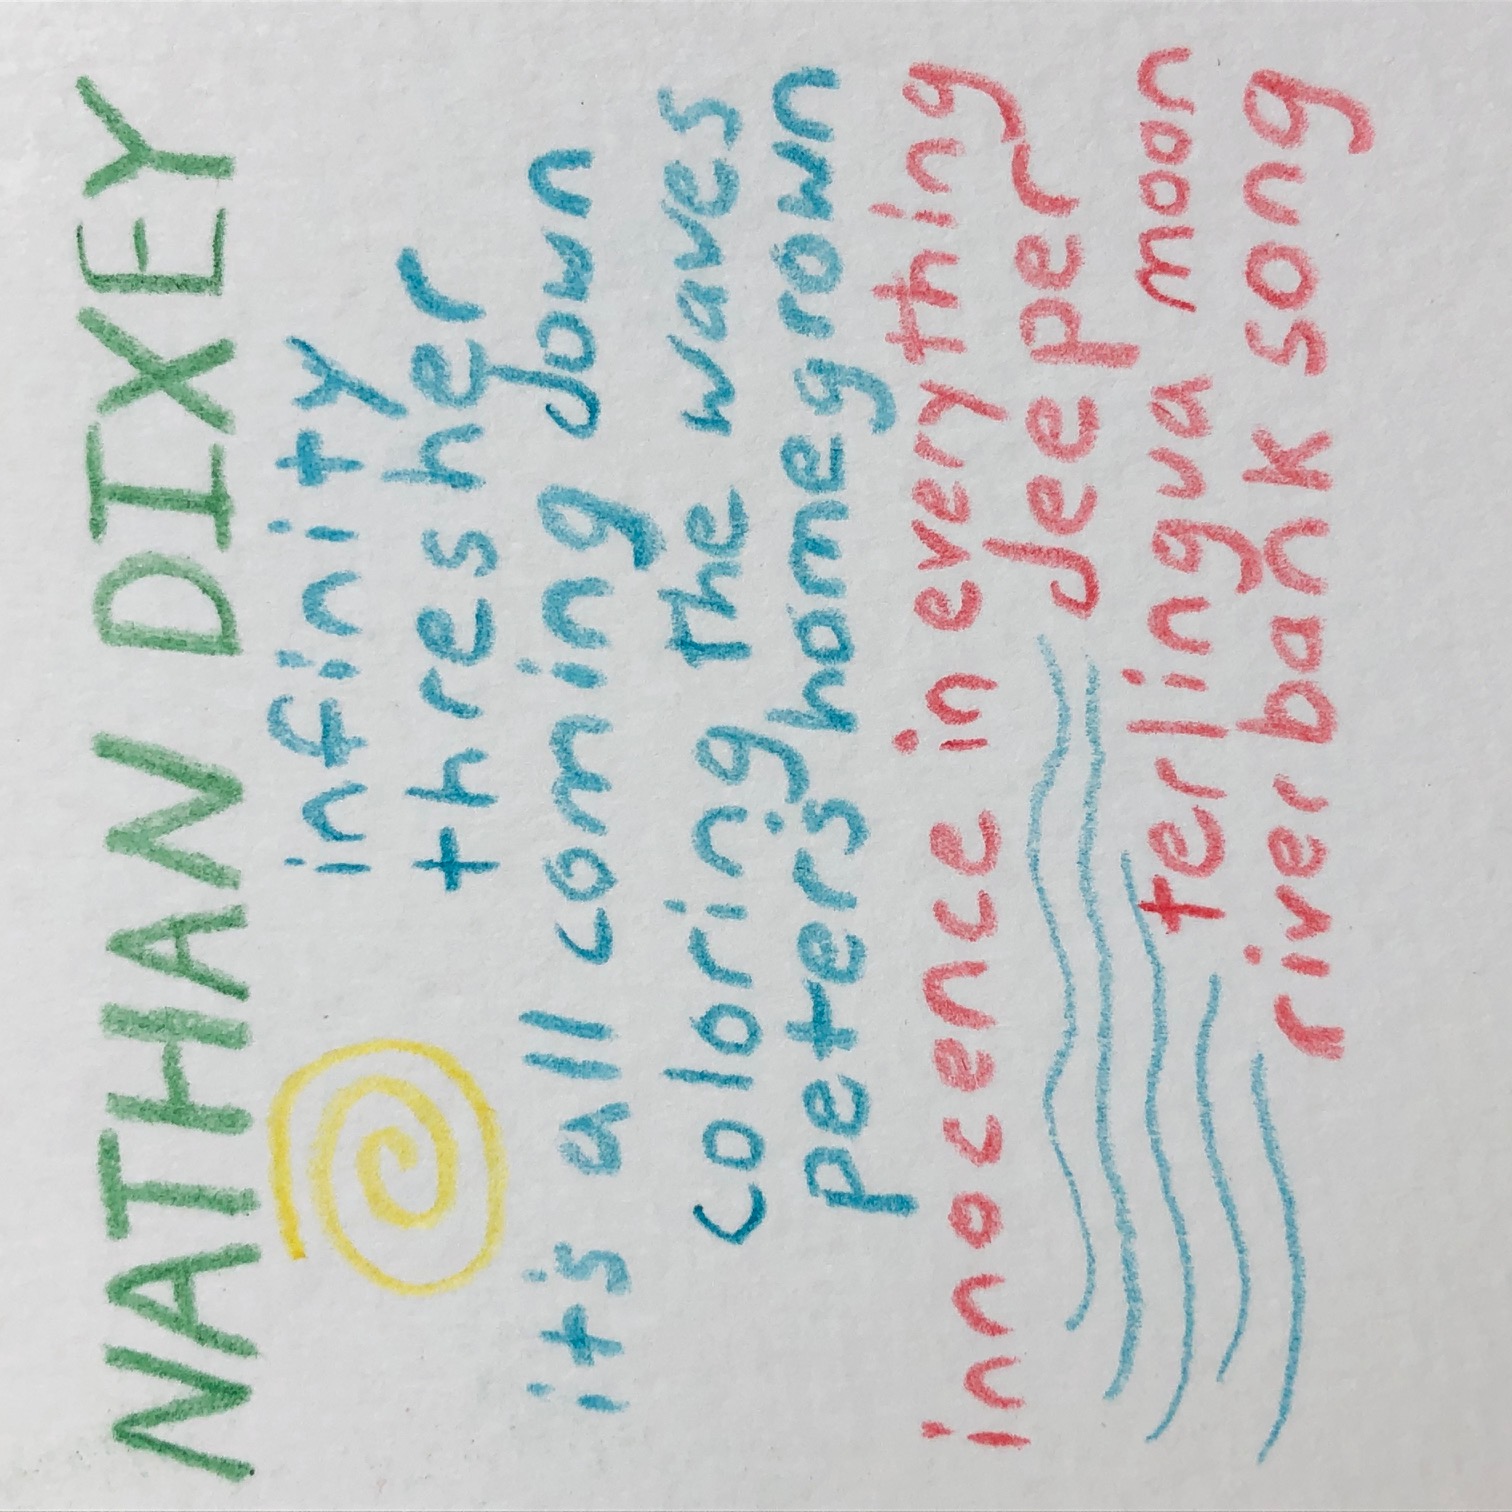 NATHAN DIXEY
infinity
thresher
it's all coming down
coloring the waves
peter's homegrown
innocence in everything
deeper
terlingua moon
river bank song